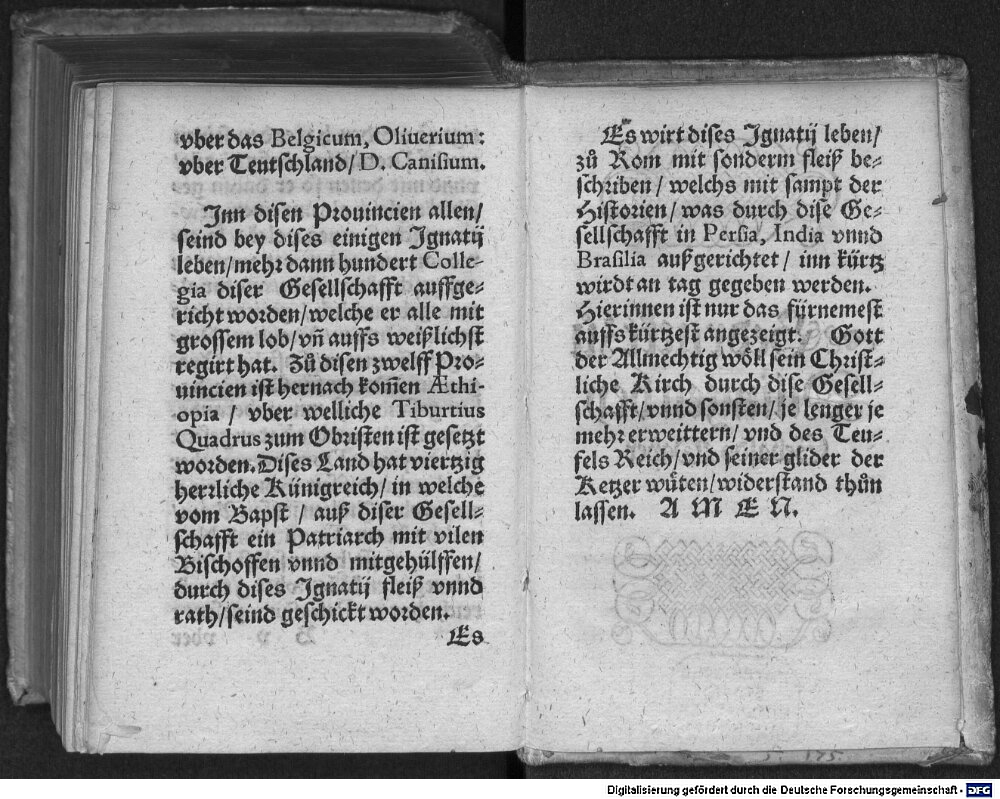 vber das Belgicum, Oliuerium:
vber Teutschland/ D. Canisium.
Inn disen Prouincien allen/
seind bey dises einigen Ignatij
leben/mehr dann hundert Colle-
gia diser Gesellschafft auffge-
richt worden/welche er alle mit
grossem lob/vñ auffs weißlichst
regirt hat. Zů disen zwelff Pro-
uincien ist hernach kom̃en Æthi-
opia / vber welliche Tiburtius
Quadrus zum Obristen ist gesetzt
worden. Dises Land hat viertzig
herrliche Künigreich/ in welche
vom Bapst / auß diser Gesell-
schafft ein Patriarch mit vilen
Bischoffen vnnd mitgehülffen/
durch dises Ignatij fleiß vnnd
rath/seind geschickt worden.
Es
Es wirt dises Ignatij leben/
zů Rom mit sonderm fleiß be-
schriben / welchs mit sampt der
Historien/ was durch dise Ge-
sellschafft in Persia, India vnnd
Brasilia außgerichtet / inn kürtz
wirdt an tag gegeben werden.
Hierinnen ist nur das fürnemest
auffs kürtzest angezeigt. Gott
der Allmechtig wöll sein Christ-
liche Kirch durch dise Gesell-
schafft/vnnd sonsten/ je lenger je
mehr erweittern/ vnd des Teu-
fels Reich/vnd seiner glider der
Ketzer wüten/widerstand thůn
lassen. A M E N.
S. 175.
Digitalisierung gefördert durch die Deutsche Forschungsgemeinschaft - DFG